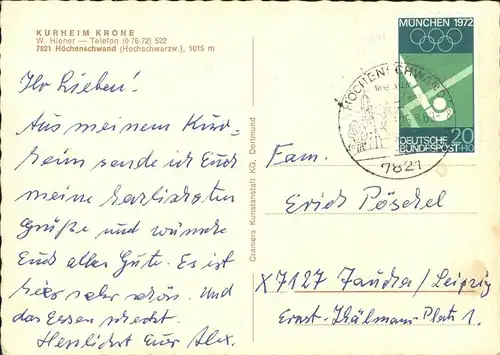 KURHEIM KRONE
W. Hiener — Telefon (0 76 72) 522
7821 Höchenschwand (Hochschwarzw.), 1015 m
Ihr Lieben!
Aus meinem Kur=
heim sende ich Euch
meine herzlichsten
Grüße und wünsche
Euch alles Gute. Es ist
hier sehr schön. Und
das Essen schmeckt.
Herzlichst Euer Alex.
Cramers Kunstanstalt KG, Dortmund
MÜNCHEN 1972
DEUTSCHE
BUNDESPOST
20
+10
HÖCHENSCHWAND
7821
Fam.
Erich Pöschel
X7127 Taucha/Leipzig
Ernst-Thälmann-Platz 1.